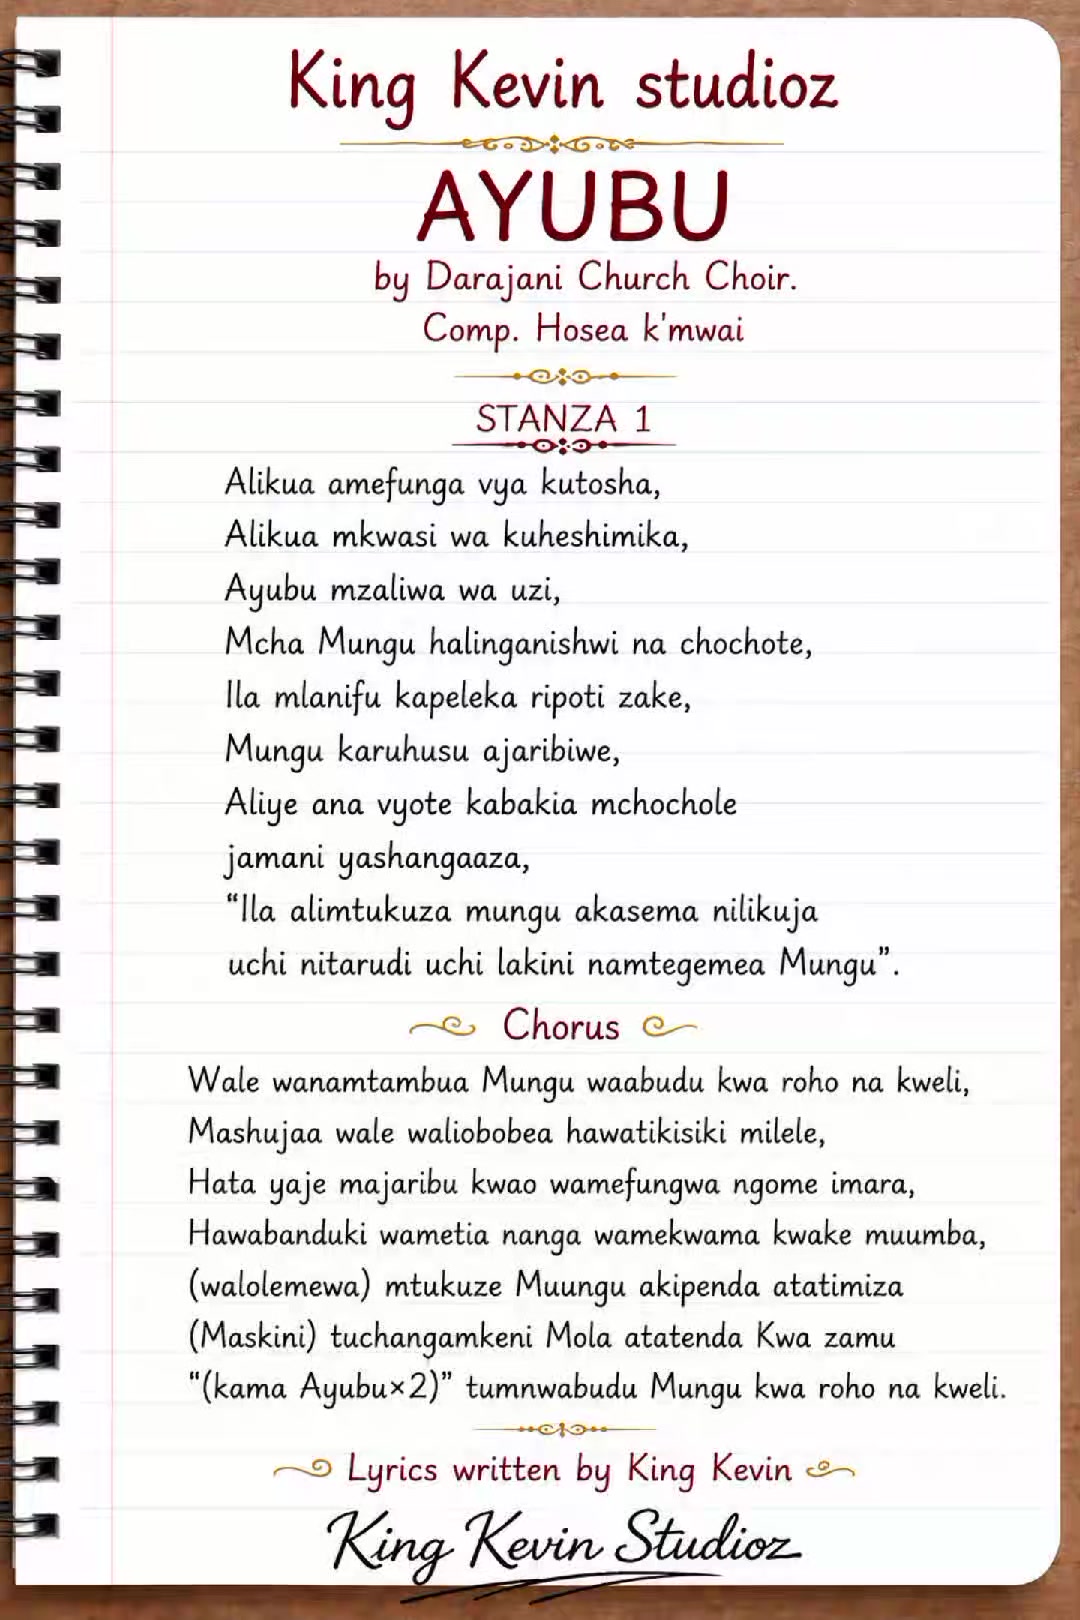 King Kevin studioz
AYUBU
by Darajani Church Choir.
Comp. Hosea k'mwai
STANZA 1
Alikua amefunga vya kutosha,
Alikua mkwasi wa kuheshimika,
Ayubu mzaliwa wa uzi,
Mcha Mungu halinganishwi na chochote,
Ila mlanifu kapeleka ripoti zake,
Mungu karuhusu ajaribiwe,
Aliye ana vyote kabakia mchochole
jamani yashangaaza,
“Ila alimtukuza mungu akasema nilikuja
uchi nitarudi uchi lakini namtegemea Mungu”.
Chorus
Wale wanamtambua Mungu waabudu kwa roho na kweli,
Mashujaa wale waliobobea hawatikisiki milele,
Hata yaje majaribu kwao wamefungwa ngome imara,
Hawabanduki wametia nanga wamekwama kwake muumba,
(walolemewa) mtukuze Muungu akipenda atatimiza
(Maskini) tuchangamkeni Mola atatenda Kwa zamu
“(kama Ayubu×2)” tumnwabudu Mungu kwa roho na kweli.
Lyrics written by King Kevin
King Kevin Studioz